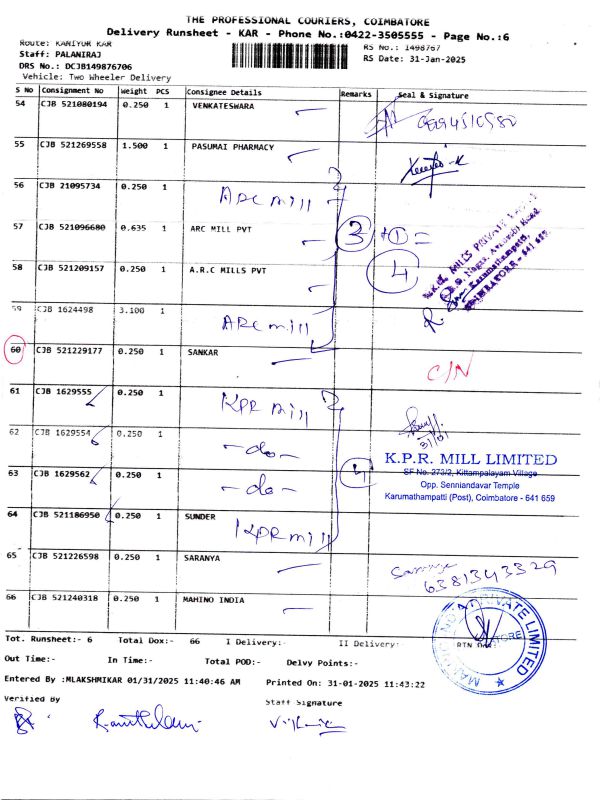 THE PROFESSIONAL COURIERS, COIMBATORE
Delivery Runsheet - KAR - Phone No.:0422-3505555 - Page No.:6
Route: KANIYUR KAR
RS No.: 1498767
Staff: PALANIRAJ
RS Date: 31-Jan-2025
DRS No.: DCJB149876706
Vehicle: Two Wheeler Delivery
S No Consignment No Weight PCS Consignee Details Remarks Seal & Signature
54 CJB 521080194 0.250 1 VENKATESWARA
55 CJB 521269558 1.500 1 PASUMAI PHARMACY
56 CJB 21095734 0.250 1 ARC mill
57 CJB 521096680 0.635 1 ARC MILL PVT 3 +1 =
58 CJB 521209157 0.250 1 A.R.C MILLS PVT 4
59 CJB 1624498 3.100 1 ARC mill
60 CJB 521229177 0.250 1 SANKAR C/N
61 CJB 1629555 0.250 1 KPR mill
31/01
62 CJB 1629554 0.250 1 -do-
K.P.R. MILL LIMITED
SF No. 273/2, Kittampalayam Village
63 CJB 1629562 0.250 1 -do- 4
Opp. Senniandavar Temple
Karumathampatti (Post), Coimbatore - 641 659
64 CJB 521186950 0.250 1 SUNDER KPR mill
65 CJB 521226598 0.250 1 SARANYA
6381343329
66 CJB 521240318 0.250 1 MAHINO INDIA
PRIVATE LIMITED
Tot. Runsheet:- 6 Total Dox:- 66 I Delivery:- II Delivery:- RTN
Out Time:- In Time:- Total POD:- Delvy Points:-
Entered By :MLAKSHMIKAR 01/31/2025 11:40:46 AM Printed On: 31-01-2025 11:43:22
Verified By Staff Signature